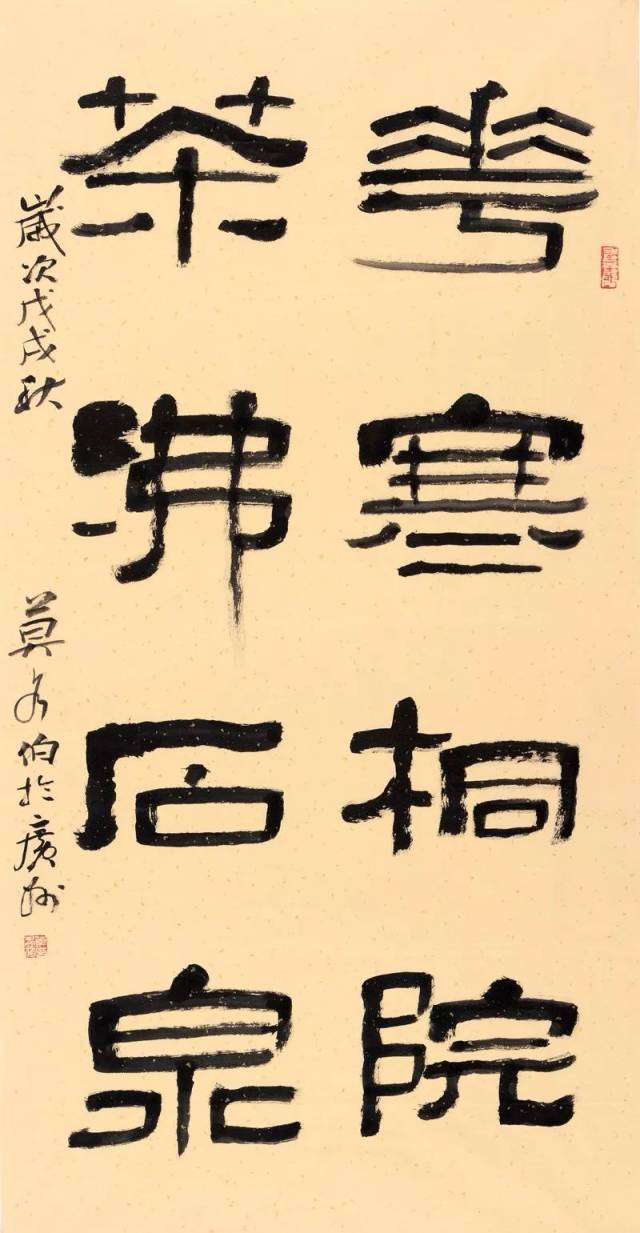 華寒桐院
茶沸石泉
歲次戊戌秋莫各伯於廣州